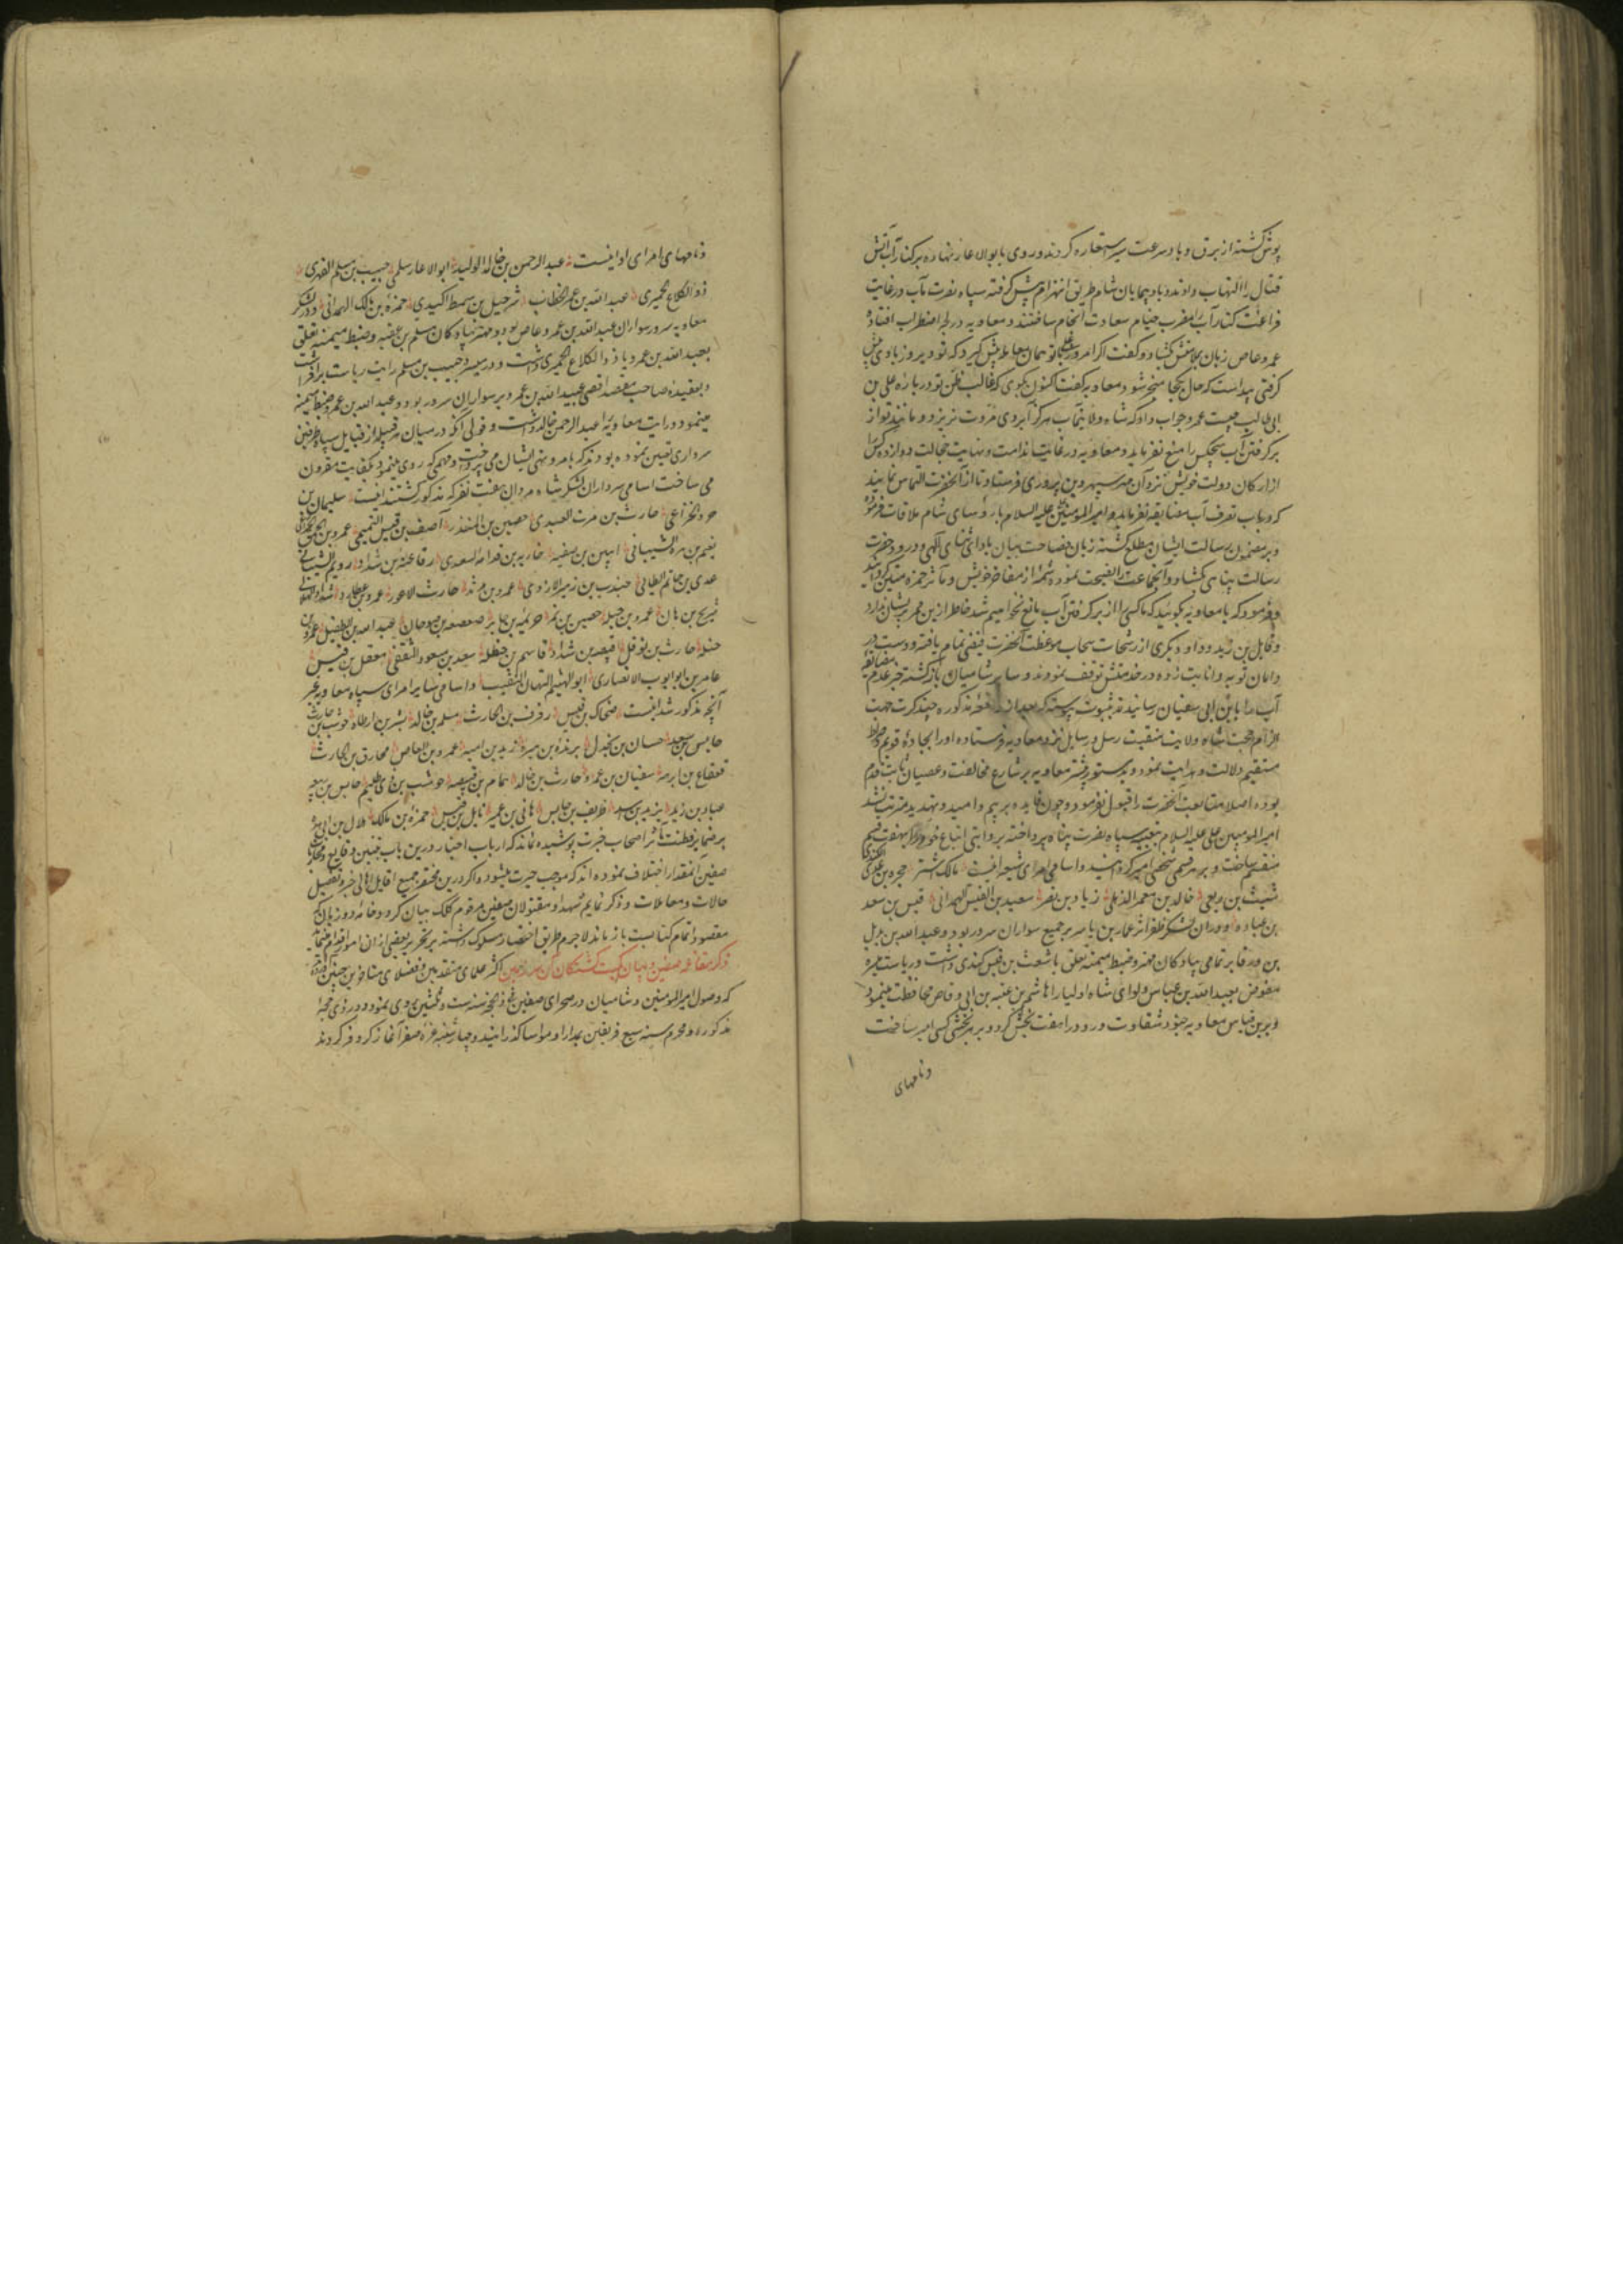 پوش گشته از برق و باد سرعت سیر استعاره کردند و روی بابوالاعار نهاده بر کنار آب آتش
قتال را التهاب دادند و باد پیمایان شام طریق انهزام پیش گرفته سپاه نصرت مآب در غایت
فراغت کنار آب را مضرب خیام سعادت انجام ساختند و معاویه در لجه اضطراب افتاد و
عمرو عاص زبان بملامتش گشاد و گفت اگر امروز علی با تو همان معامله پیش گیرد که تو دیروز با وی پیش
گرفتی پیداست که حال بکجا منجر شود معاویه گفت اکنون بگوی که غالب ظن تو درباره علی بن
ابی طالب چیست عمرو جواب داد که شاه ولایتمآب هرگز آبروی مروت نریزد و مانند تو از
برگرفتن آب هیچکس را منع نفرماید و معاویه در غایت ندامت و نهایت خجالت دوازده کس
از ارکان دولت خویش نزد آن مهر سپهر دین پروری فرستاد تا از آنحضرت التماس نمایند
که در باب تصرف آب مضایقه نفرماید و امیرالمؤمنین علی علیه السلام با رؤسای شام ملاقات فرموده
و بر مضمون رسالت ایشان مطلع گشته زبان فصاحت بیان بادای ثنای الهی و درود حضرت
رسالت پناهی گشاد و آنجماعت را نصیحت نموده شمه از مفاخر خویش و مآثر حمزه متبین گردانید
و فرمود که با معاویه بگویید که ما کسی را از برگرفتن آب مانع نخواهیم شد خاطر ازین ممر پریشان ندارد
و قابل بن زید و داود و یکری از رشحات سحاب موعظت آنحضرت فیضی تمام یافته و دست در
دامان توبه و انابت زده در خدمتش توقف نمودند و سایر شامیان بازگشته خبر عدم مضایقه
آب را بابن ابی سفیان رسانیدند بثبوت پیوسته که بعد از واقعه مذکوره چند کرت جهت
الزام حجت شاه ولایت منقبت رسل و رسایل نزد معاویه فرستاده او را بجاده قویم و صراط
مستقیم دلالت و هدایت نمود و بدستور پیشتر معاویه بر شارع مخالفت و عصیان ثابت قدم
بوده اصلا متابعت آنحضرت را قبول نفرمود و چون فایده بر بیم و امید و تهدید مترتب نشد
امیر المومنین علی علیه السلام بتعبیه سپاه نصرت پناه پرداخته بروایتی اتباع خود را بهفت قسم
منقسم ساخت و بر هر قسمی شخصی امیر گردانید و اسامی امرای شیعه اینست مالک اشتر حجر بن عدی الکندی
شبث بن ربعی خالد بن معمر الذهلی زیاد بن نضر سعید بن القیس الهمدانی قیس بن سعد
بن عباده و در آن لشکر ظفر اثر عمار بن یاسر بر جمیع سواران سرور بود و عبد الله بن بدیل
بن ورقا بر تمامی پیادگان مهتر و ضبط میمنه تعلق باشعث بن قیس کندی داشت و ریاست میسره
مفوض بعبد الله بن عباس و لوای شاه اولیا را هاشم بن عتبه بن ابی وقاص محافظت مینمود
و برین قیاس معاویه جنود شقاوت ورود را هفت بخش کرد و بر هر بخشی کسی امیر ساخت
و نامهای
و نامهای امرای او اینست عبد الرحمن بن خالد الولید ابو الاعار سلمی حبیب بن مسلم الفهری
ذو الکلاع حمیری عبد الله بن عمر الخطاب شرحبیل بن سمط الکندی حمزه بن مالک الهمدانی و در لشکر
معاویه سرور سواران عبد الله بن عمرو عاص بود و مهتر پیادگان مسلم بن عقبه و ضبط میمنه تعلق
بعبد الله بن عمرو یا ذو الکلاع الحمیری داشت و در میسره حبیب بن مسلم رایت ریاست برافراشت
و بعقیده صاحب مقصد اقصی عبید الله بن عمر بر سواران سرور بود و عبد الله بن عمرو ضبط میمنه
مینمود و رایت معاویه را عبد الرحمن خالد داشت و قولی آنکه در میان هر قبیله از قبایل سپاه طرفین
سرداری تعیین نموده بودند که بامر و نهی ایشان می پرداخت و مهمی که روی مینمود بکفایت مقرون
می ساخت اسامی سرداران لشکر شاه مردان بهفت نفر که مذکور گشتند اینست سلیمان بن
صرد الخزاعی حارث بن مرت العبدی حصین بن المنذر احنف بن قیس التمیمی عمرو بن الحمق
نعیم بن هبره الشیبانی خاریه بن قدامه السعدی رفاعه بن شداد رویم الشیبانی
عدی بن حاتم الطایی جندب بن زهیر الازدی عمرو بن مرثد حارث الاعور عمرو بن عطارد
شریح بن هانی عمرو بن جبله حصین بن نمر خزیمه بن جابر صعصعه بن صوحان عبد الله بن الطفیل
حنظله حارث بن نوفل قبیصه بن شداد قاسم بن حنظله سعد بن مسعود الثقفی معقل بن قیس
عامر بن ابوایوب الانصاری ابو الهیثم التیهان النقیب و اسامی سایر امرای سپاه معاویه غیر
آنچه مذکور شد اینست ضحاک بن قیس زفر بن الحارث مسلم بن خالد بشر بن ارطاه حوشب بن
حابس بن سعد حسان بن بحدل یزید بن امیه عمرو بن العاص مخارق بن الحارث
قعقاع بن ابرهه سفیان بن عمرو حارث بن خالد همام بن قبیصه حوشب بن ذی ظلیم حابس بن ربیعه
عباد بن زید یزید بن اسد طریف بن حابس هانی بن عمیر نابل بن قیس حمزه بن مالک بلال بن ابی هریره
بر ضمایر فطنت مآثر اصحاب خبرت پوشیده نماند که ارباب اخبار درین باب تعیین وقایع و محاربات
صفین آنمقدار اختلاف نموده اند که موجب حیرت میشود و اگر درین مختصر جمیع اقاویل اهالی خبر و تفصیل
حالات و معاملات و ذکر تمامی شهدا و مقتولان صفین مرقوم کلک بیان گردد خامه دو زبان از
مقصود اتمام کتابت باز ماند لاجرم طریق اختصار مسلوک داشته بر تحریر بعضی از آن امور اقدام مینماید
ذکر مقاتله صفین و بیان کمیت کشتگان آن سرزمین اکثر علمای متقدمین و فضلای متاخرین چنین آورده اند
که وصول امیرالمؤمنین و شامیان در صحرای صفین غره ذی حجه سنه ست و ثلثین روی نمود و در ذی حجه
مذکوره و محرم سنه سبع فریقین بمدارا و مواسا گذرانیدند و چهارشنبه غره صفر آغاز کر و فر کردند